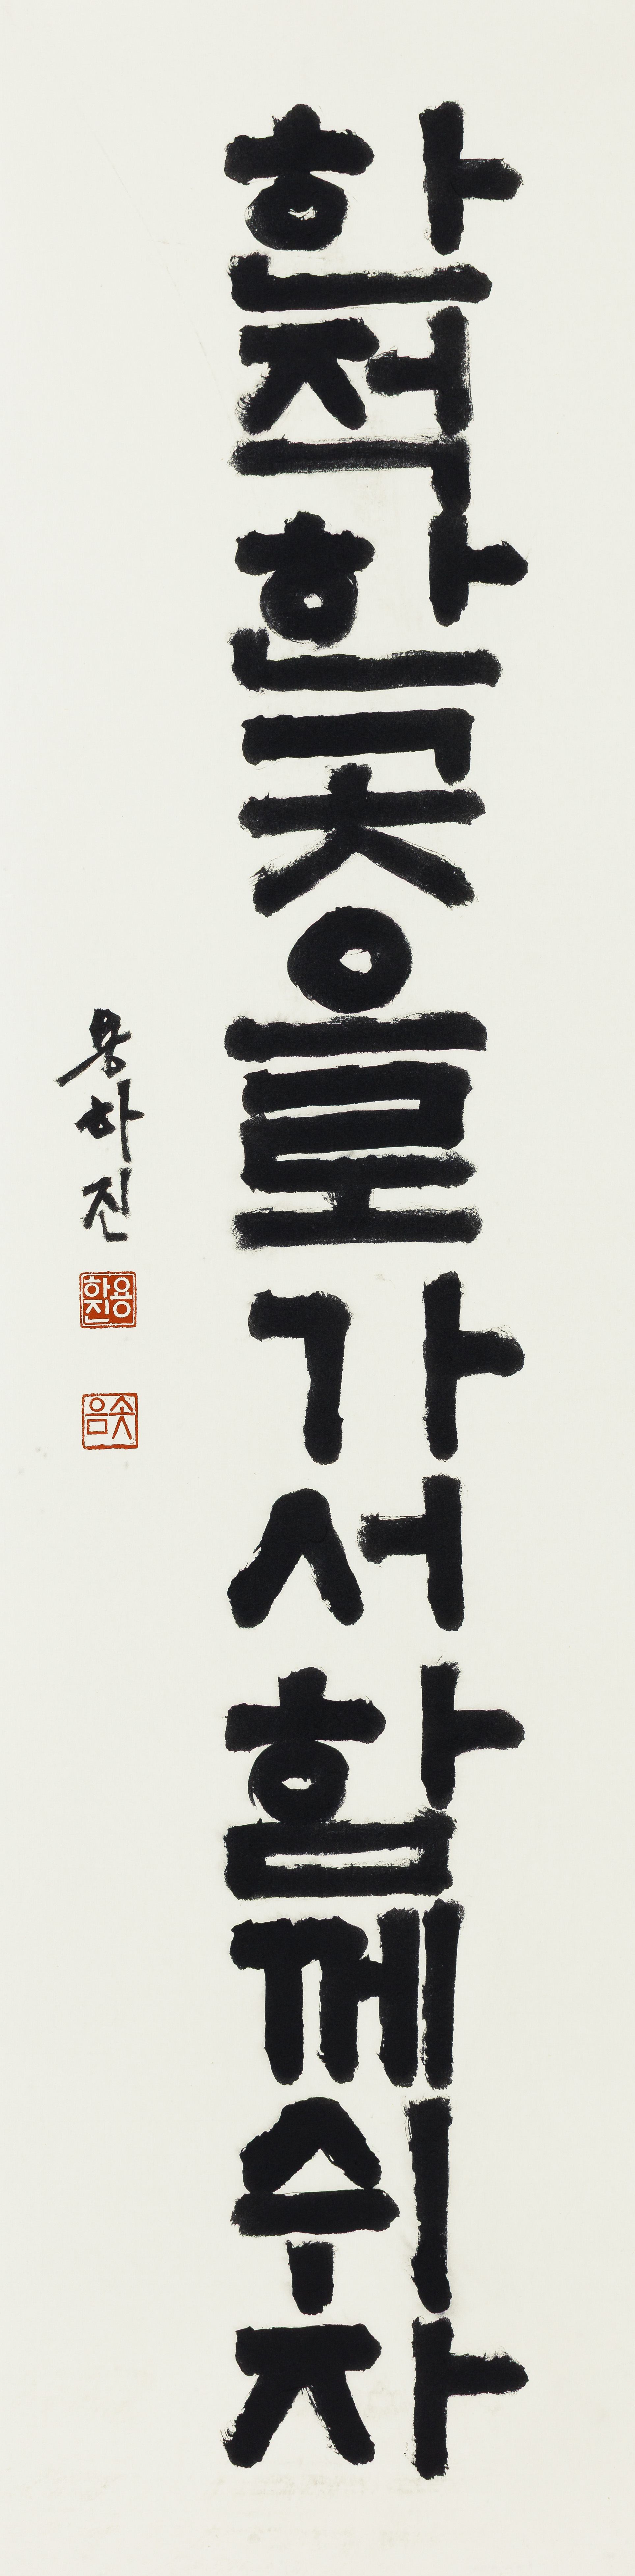 한적한 곳으로 가서 함께 쉬자
용하진
용하진
솟음